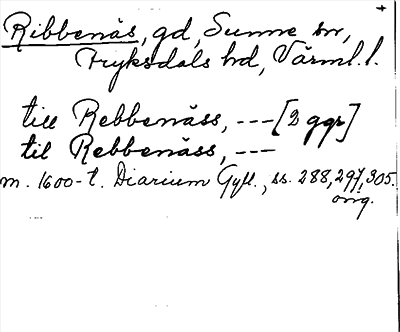 Ribbenäs, gd, Sunne sn,
Fryksdals hd, Värml. l.
till Rebbenäss, --- [2 ggr]
til Rebbenäss, ---
m. 1600-t. Diarium Gyll., ss. 288, 297, 305.
orig.